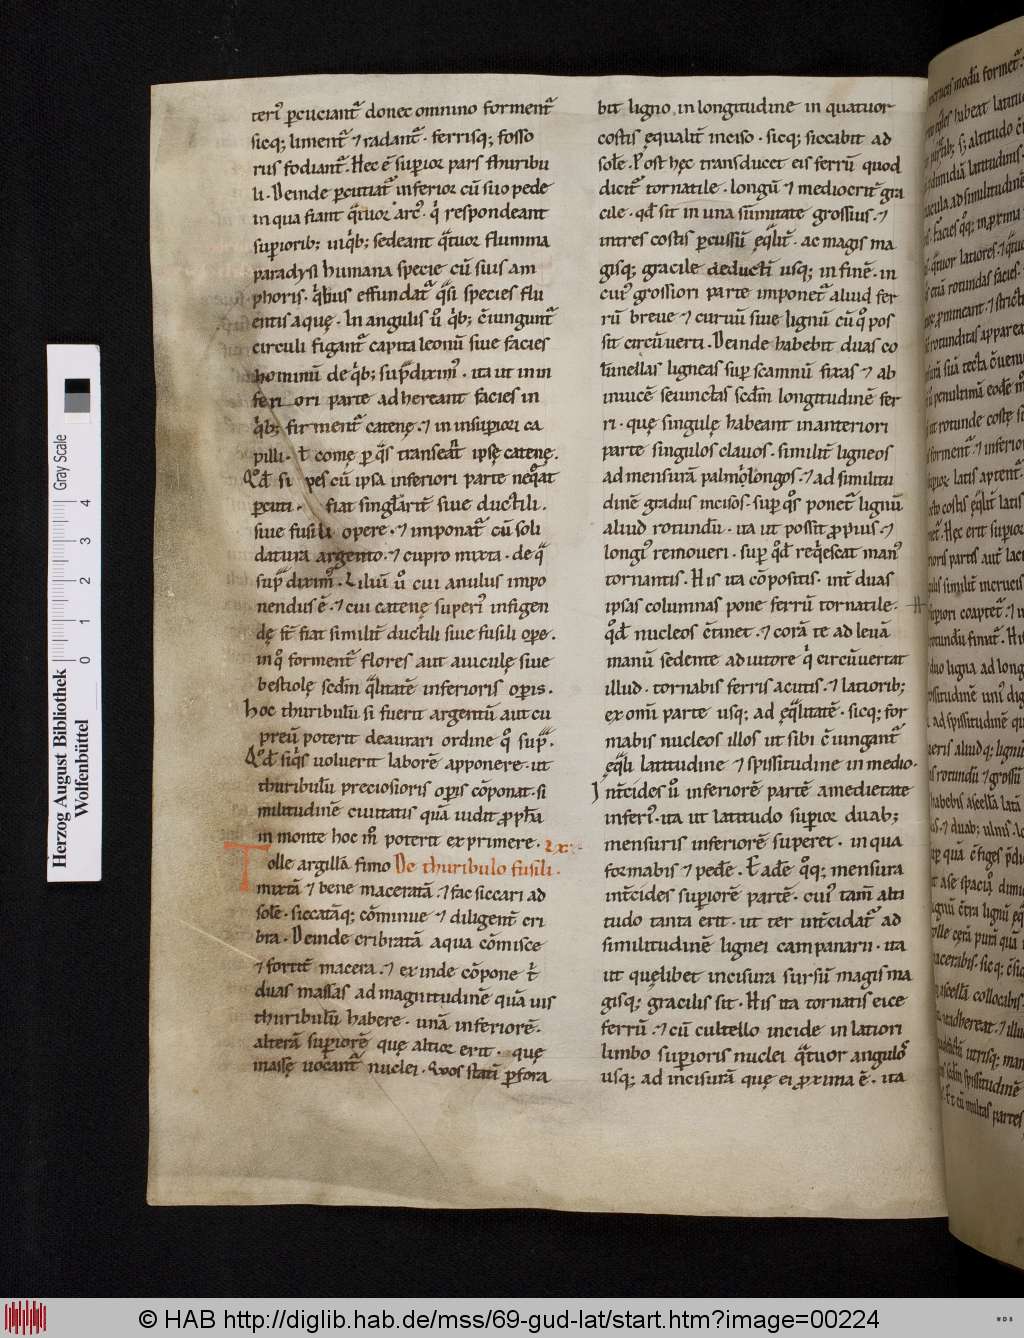 teri᷒ ꝑcuciant᷑ donec omnino forment᷑
sicq; liment᷑ ⁊ radant᷑ · ferrisq; fosso
rus fodiant᷑ . Hec ē suꝑior pars thuribu
li . Deinde ꝑcutiat᷑ inferior cū suo pede
in qua fiant qͣtuor arc᷒ . qͥ respondeant
suꝑiorib; inqͥb; sedeant qͣtuor flumina
paradysi humana specie cū suis am
phoris . qͥbus effundat᷑ qͣsi species flu
entis aquę . In angulis ū qͥb; c̄iungunt᷑
circuli figant᷑ capita leonū siue facies
hominū de qͥb; supͣdixim᷒ . ita ut in in
feri ori parte adhereant facies in
qͥb; firment᷑ catenę . ⁊ in insuꝑiori ca
pilli . ł comę ꝑ qͦs transeat᷑ ipsę catenę .
Qd̄ si pes cū ipsa inferiori parte neqͣat
ꝑcuti . fiat singłarit̄ siue ductili .
siue fusili opere . ⁊ imponat᷑ cū soli
datura argento . ⁊ cupro mixta . de qͣ
supͣ dixim᷒ . Liliū ū cui anulus impo
nendus ē . ⁊ cui catenę superi᷒ infigen
dę st̄ fiat similit̄ ductili siue fusili oꝑe .
in qͦ forment᷑ flores aut auiculę siue
bestiolę scdm̄ qͣlitatē inferioris oꝑis .
Hoc thuribulū si fuerit argentū aut cu
preū poterit deaurari ordine qͦ supͣ .
Qd̄ siqͥs uoluerit laborē apponere . ut
thuribulū preciosioris oꝑis cōponat . si
militudinē ciuitatis quā uidit ꝓph̄a
in monte hoc m̊ poterit exprimere . LX .
Tolle argillā fimo De thuribulo fusili .
mixtā ⁊ bene maceratā ⁊ fac siccari ad
sole . siccatāq; cōminue ⁊ diligent̄ cri
bra . Deinde cribratā aqua cōmisce
⁊ fortit̄ macera . ⁊ exinde cōpone ł
duas massas ad magnitudinē quā uis
thuribulū habere . unā inferiorē .
alterā suꝑiorē quę altior erit . quę
massę uocant᷑ nuclei . Quos statī ꝑfora
bit ligno in longitudine in quatuor
costis ęqualit̄ inciso . sicq; siccabit ad
sole . Post hęc transducet eis ferrū quod
dicit᷑ tornatile . longū ⁊ mediocrit̄ gra
cile . qd̄ sit in una sūmitate grossius . ⁊
intres costis ꝑcussū ęqͣlit̄ . ac magis ma
gisq; gracile deducti usq; in finē . in
cui᷒ grossiori parte imponet᷑ aliud fer
rū breue ⁊ curuū siue lignū cū qͦ pos
sit circūuerti . Deinde habebit duas co
lūnellas ligneas suꝑ scamnū fixas ⁊ ab
inuicē seiunctas scdm̄ longitudinē fer
ri . quę singulę habeant in anteriori
parte singulos clauos . similit̄ ligneos
ad mensurā palmi longos . ⁊ ad similitu
dinē gradus incisos . suꝑ qͦs ponet᷑ lignū
aliud rotundū . ita ut possit ꝓpius . ⁊
longi᷒ remoueri . suꝑ qd̄ reqͥescat man᷒
tornantis . His ita cōpositis . int̄ duas
ipsas columnas pone ferrū tornatile .
qd̄ nucleos c̄tinet . ⁊ corā te ad leuā
manū sedente adiutore qͥ circūuertat
illud . tornabis ferris acutis . ⁊ latiorib;
ex omī parte usq; ad ęqͣlitatē . sicq; for
mabis nucleos illos ut sibi c̄iungant᷑
ęqͣli latitudine ⁊ spissitudine in medio .
Int̄cides ū inferiorē partē a medietate
inferi᷒ . ita ut latitudo suꝑior duab;
mensuris inferiorē superet . in qua
formabis ⁊ pedē . Eadē qͦq; mensura
int̄cides suꝑiorē partē . cui᷒ tam̄ alti
tudo tanta erit . ut ter int̄cidat᷑ ad
similitudinē lignei campanarii . ita
ut quęlibet incisura sursū magis ma
gisq; gracilis sit . His ita tornatis eice
ferrū . ⁊ cū cultello incide in latiori
limbo suꝑioris nuclei qͣtuor angulos
usq; ad incisurā quę ei ꝓxima ē . ita
Herzog August Bibliothek
Wolfenbüttel
0 1 2 3 4
Gray Scale
© HAB http://diglib.hab.de/mss/69-gud-lat/start.htm?image=00224